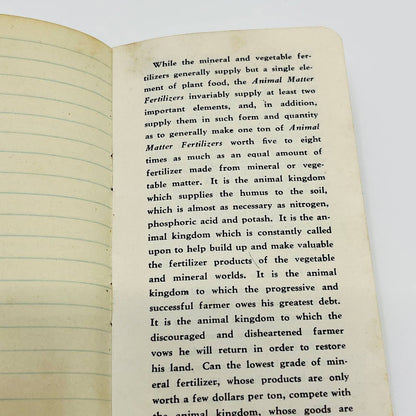 While the mineral and vegetable fer-
tilizers generally supply but a single ele-
ment of plant food, the Animal Matter
Fertilizers invariably supply at least two
important elements, and, in addition,
supply them in such form and quantity
as to generally make one ton of Animal
Matter Fertilizers worth five to eight
times as much as an equal amount of
fertilizer made from mineral or vege-
table matter. It is the animal kingdom
which supplies the humus to the soil,
which is almost as necessary as nitrogen,
phosphoric acid and potash. It is the an-
imal kingdom which is constantly called
upon to help build up and make valuable
the fertilizer products of the vegetable
and mineral worlds. It is the animal
kingdom to which the progressive and
successful farmer owes his greatest debt.
It is the animal kingdom to which the
discouraged and disheartened farmer
vows he will return in order to restore
his land. Can the lowest grade of min-
eral fertilizer, whose products are only
worth a few dollars per ton, compete with
the animal kingdom, whose goods are